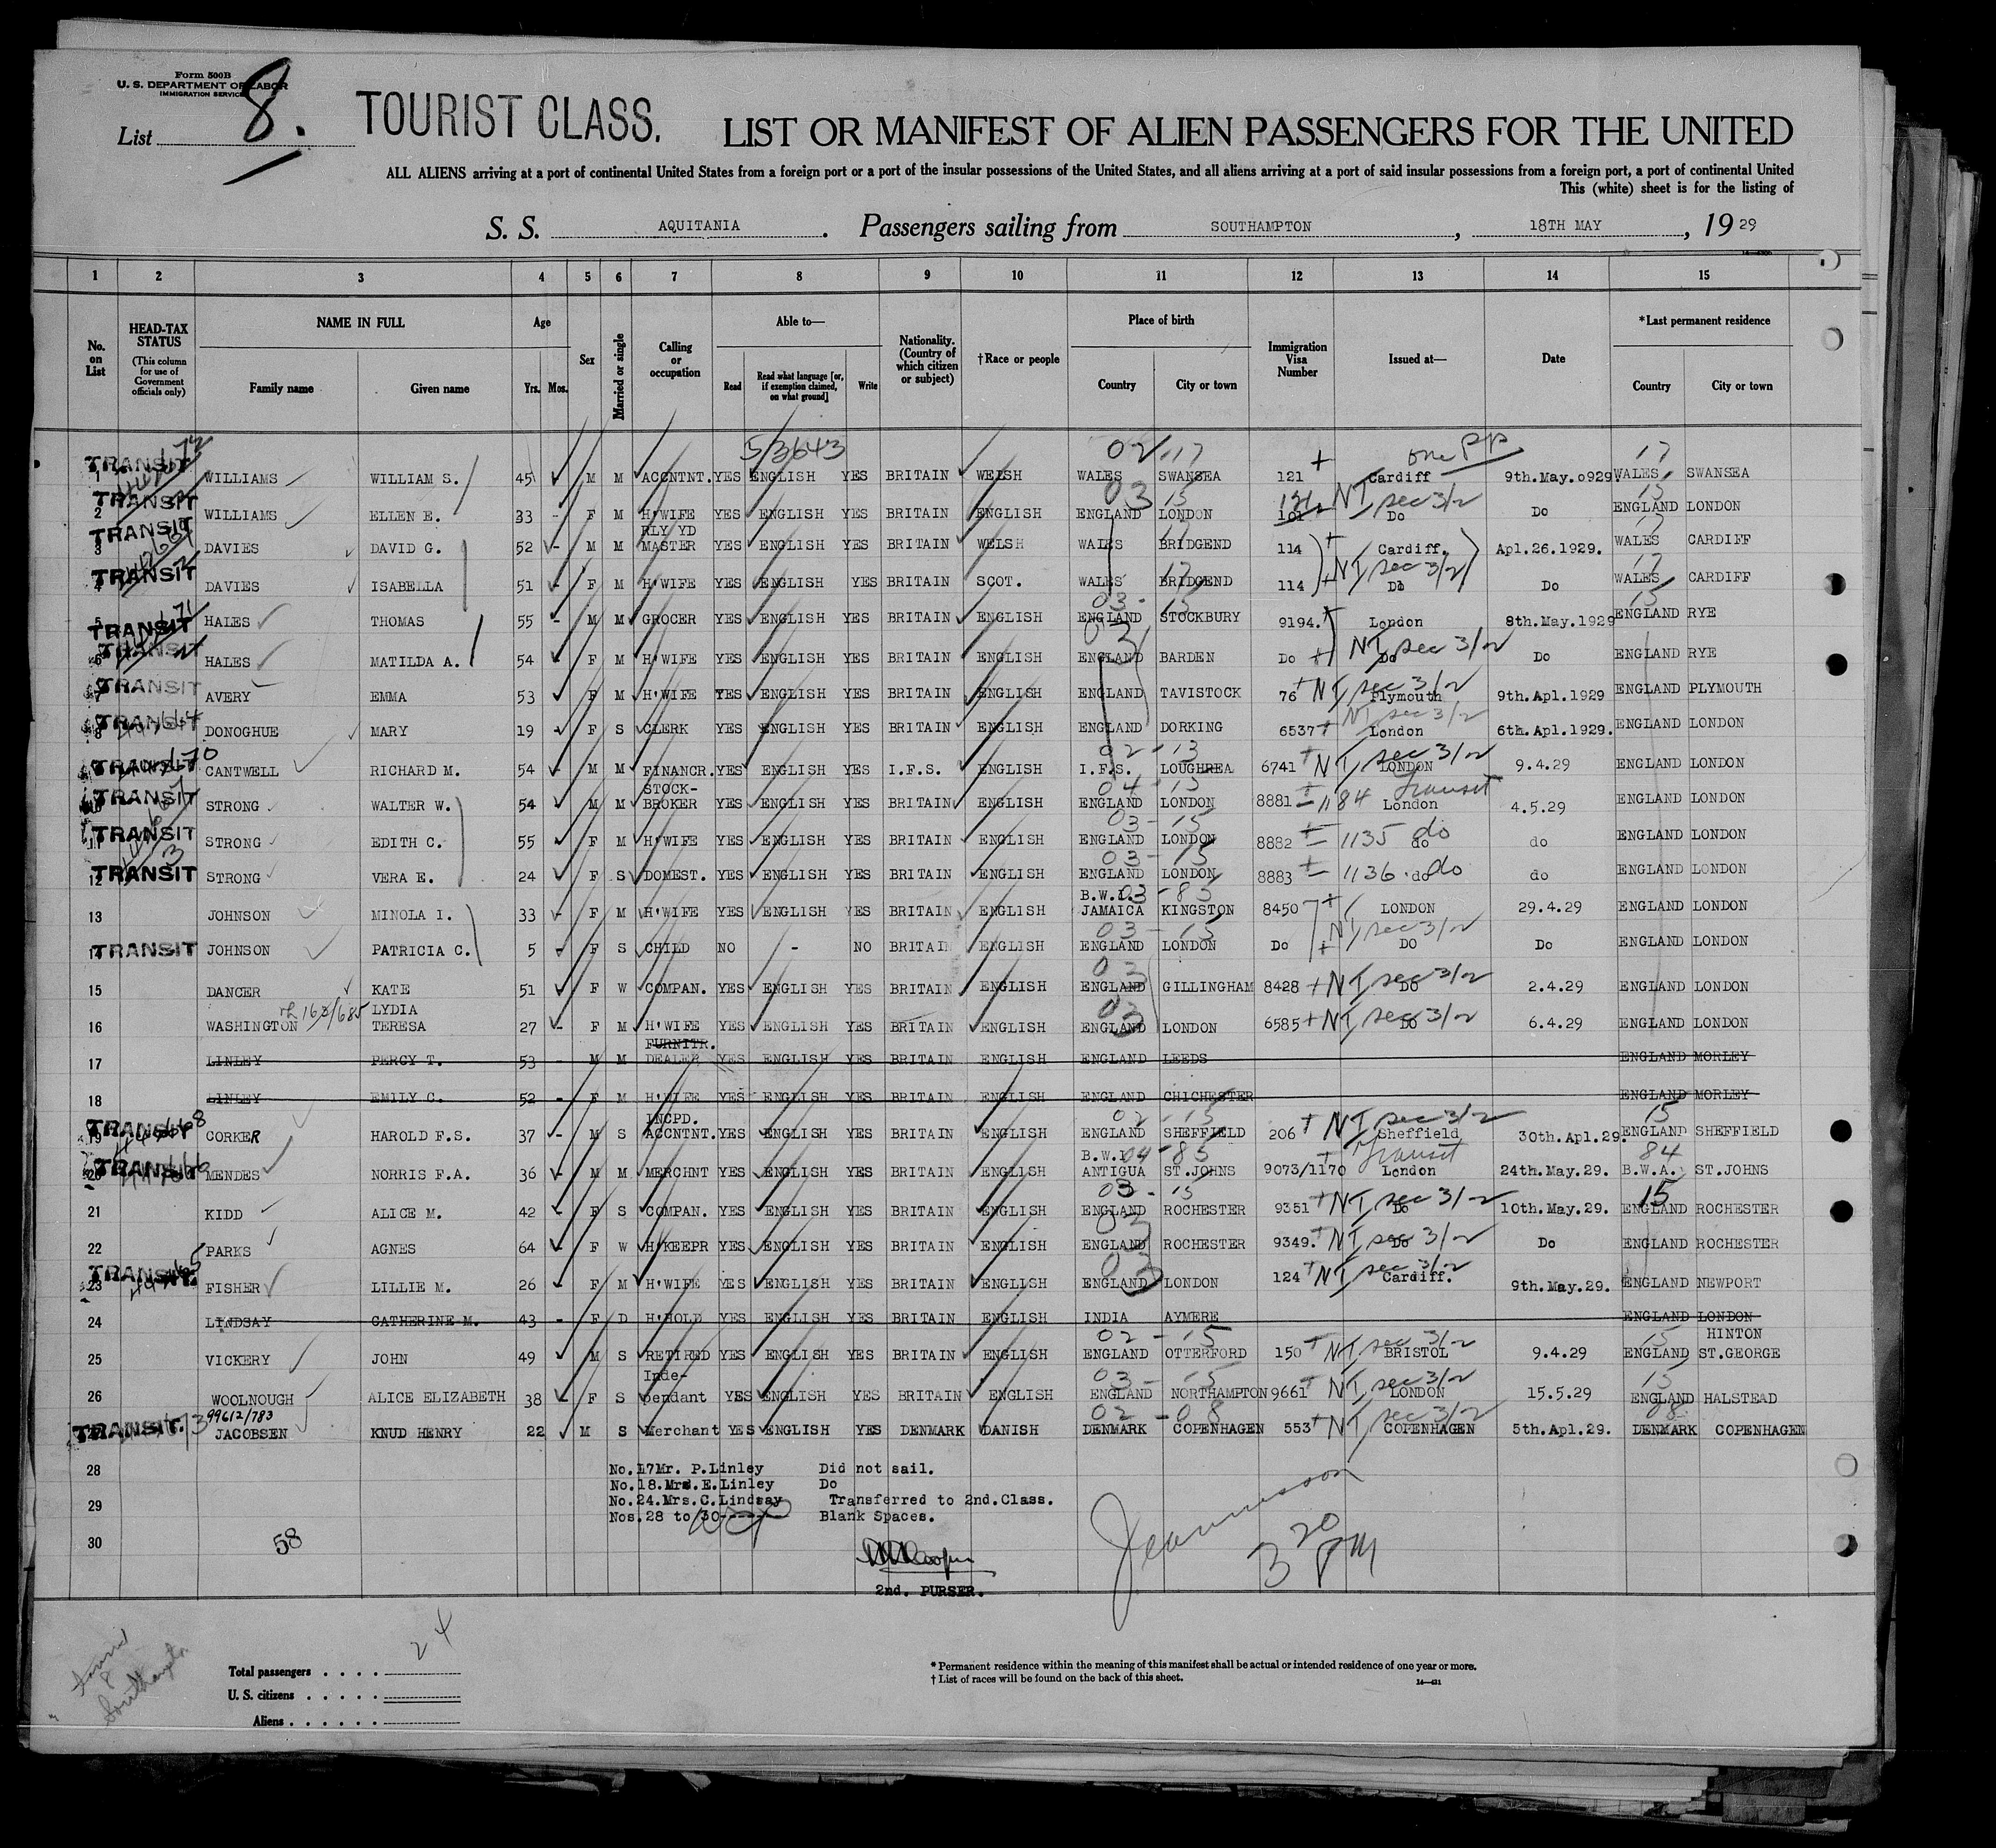 Form 500B
U. S. DEPARTMENT OF LABOR
IMMIGRATION SERVICE
List 8.
TOURIST CLASS.
LIST OR MANIFEST OF ALIEN PASSENGERS FOR THE UNITED
ALL ALIENS arriving at a port of continental United States from a foreign port or a port of the insular possessions of the United States, and all aliens arriving at a port of said insular possessions from a foreign port, a port of continental United
This (white) sheet is for the listing of
S. S. AQUITANIA. Passengers sailing from SOUTHAMPTON, 18TH MAY, 19 29
1 2 3 4 5 6 7 8 9 10 11 12 13 14 15
No. on List
HEAD-TAX STATUS
(This column for use of Government officials only)
NAME IN FULL
Family name Given name
Age
Yrs. Mos.
Sex
Married or single
Calling or occupation
Able to—
Read Read what language [or, if exemption claimed, on what ground] Write
Nationality. (Country of which citizen or subject)
†Race or people
Place of birth
Country City or town
Immigration Visa Number
Issued at—
Date
*Last permanent residence
Country City or town
5/3643 02/17 one PP 17
TRANSIT 1 WILLIAMS WILLIAM S. 45 M M ACCNTNT. YES ENGLISH YES BRITAIN WELSH WALES SWANSEA 121 Cardiff 9th.May.0929 WALES SWANSEA
03 15 NI sec 3/2 15
TRANSIT 2 WILLIAMS ELLEN E. 33 - F M H'WIFE YES ENGLISH YES BRITAIN ENGLISH ENGLAND LONDON 121 101 Do Do ENGLAND LONDON
TRANSIT 3 DAVIES DAVID G. 52 - M M RLY YD MASTER YES ENGLISH YES BRITAIN WELSH WALES BRIDGEND 114 Cardiff. Apl.26.1929. WALES CARDIFF
TRANSIT 4 DAVIES ISABELLA 51 F M H'WIFE YES ENGLISH YES BRITAIN SCOT. WALES BRIDGEND 114 NI sec 3/2 Do Do WALES CARDIFF
TRANSIT 5 HALES THOMAS 55 - M M GROCER YES ENGLISH YES BRITAIN ENGLISH ENGLAND STOCKBURY 9194. London 8th.May.1929 ENGLAND RYE
TRANSIT 6 HALES MATILDA A. 54 F M H'WIFE YES ENGLISH YES BRITAIN ENGLISH ENGLAND BARDEN Do NI sec 3/2 Do Do ENGLAND RYE
TRANSIT 7 AVERY EMMA 53 F M H'WIFE YES ENGLISH YES BRITAIN ENGLISH ENGLAND TAVISTOCK 76 NI sec 3/2 Plymouth 9th.Apl.1929 ENGLAND PLYMOUTH
TRANSIT 8 DONOGHUE MARY 19 F S CLERK YES ENGLISH YES BRITAIN ENGLISH ENGLAND DORKING 6537 NI sec 3/2 London 6th.Apl.1929. ENGLAND LONDON
02-13
TRANSIT CANTWELL RICHARD M. 54 M M FINANCR. YES ENGLISH YES I.F.S. ENGLISH I.F.S. LOUGHREA 6741 NI sec 3/2 LONDON 9.4.29 ENGLAND LONDON
04-15 Transit
TRANSIT 10 STRONG WALTER W. 54 M M STOCK-BROKER YES ENGLISH YES BRITAIN ENGLISH ENGLAND LONDON 8881 - 1184 London 4.5.29 ENGLAND LONDON
03-15
TRANSIT 11 STRONG EDITH C. 55 F M H'WIFE YES ENGLISH YES BRITAIN ENGLISH ENGLAND LONDON 8882 - 1135 do do do ENGLAND LONDON
03-15
TRANSIT 12 STRONG VERA E. 24 F S DOMEST. YES ENGLISH YES BRITAIN ENGLISH ENGLAND LONDON 8883 - 1136 do do do ENGLAND LONDON
03-85
13 JOHNSON MINOLA I. 33 F M H'WIFE YES ENGLISH YES BRITAIN ENGLISH B.W.I. JAMAICA KINGSTON 8450 LONDON 29.4.29 ENGLAND LONDON
03-15 NI sec 3/2
TRANSIT 14 JOHNSON PATRICIA C. 5 - F S CHILD NO - NO BRITAIN ENGLISH ENGLAND LONDON Do DO Do ENGLAND LONDON
03
15 DANCER KATE 51 F W COMPAN. YES ENGLISH YES BRITAIN ENGLISH ENGLAND GILLINGHAM 8428 NI sec 3/2 DO 2.4.29 ENGLAND LONDON
03
16 WASHINGTON LYDIA TERESA 27 - F M H'WIFE YES ENGLISH YES BRITAIN ENGLISH ENGLAND LONDON 6585 NI sec 3/2 DO 6.4.29 ENGLAND LONDON
17 LINLEY PERCY T. 53 - M M FURNITR. DEALER YES ENGLISH YES BRITAIN ENGLISH ENGLAND LEEDS ENGLAND MORLEY
18 LINLEY EMILY C. 52 - F M H'WIFE YES ENGLISH YES BRITAIN ENGLISH ENGLAND CHICHESTER ENGLAND MORLEY
02-15 15
TRANSIT 19 CORKER HAROLD F.S. 37 - M S INCPD. ACCNTNT. YES ENGLISH YES BRITAIN ENGLISH ENGLAND SHEFFIELD 206 NI sec 3/2 Sheffield 30th.Apl.29. ENGLAND SHEFFIELD
04-85 Transit 84
TRANSIT 20 MENDES NORRIS F.A. 36 M M MERCHNT YES ENGLISH YES BRITAIN ENGLISH B.W.I. ANTIGUA ST.JOHNS 9073/1170 London 24th.May.29. B.W.A. ST.JOHNS
03-15 15
21 KIDD ALICE M. 42 F S COMPAN. YES ENGLISH YES BRITAIN ENGLISH ENGLAND ROCHESTER 9351 NI sec 3/2 Do 10th.May.29. ENGLAND ROCHESTER
03
22 PARKS AGNES 64 F W H'KEEPR YES ENGLISH YES BRITAIN ENGLISH ENGLAND ROCHESTER 9349. NI sec 3/2 Do Do ENGLAND ROCHESTER
03
TRANSIT. 23 FISHER LILLIE M. 26 F M H'WIFE YES ENGLISH YES BRITAIN ENGLISH ENGLAND LONDON 124 NI sec 3/2 Cardiff. 9th.May.29. ENGLAND NEWPORT
24 LINDSAY CATHERINE M. 43 - F D H'HOLD YES ENGLISH YES BRITAIN ENGLISH INDIA AYMERE ENGLAND LONDON
02-15 15
25 VICKERY JOHN 49 M S RETIRED YES ENGLISH YES BRITAIN ENGLISH ENGLAND OTTERFORD 150 NI sec 3/2 BRISTOL 9.4.29 ENGLAND HINTON ST.GEORGE
03-15 15
26 WOOLNOUGH ALICE ELIZABETH 38 F S Inde-pendant YES ENGLISH YES BRITAIN ENGLISH ENGLAND NORTHAMPTON 9661 NI sec 3/2 LONDON 15.5.29 ENGLAND HALSTEAD
99612/783 02-08 08
TRANSIT. JACOBSEN KNUD HENRY 22 M S Merchant YES ENGLISH YES DENMARK DANISH DENMARK COPENHAGEN 553 NI sec 3/2 COPENHAGEN 5th.Apl.29. DENMARK COPENHAGEN
28 No.17Mr. P.Linley Did not sail.
No.18.Mrs.E.Linley Do
29 No.24.Mrs.C.Lindsay Transferred to 2nd.Class.
Nos.28 to 30------ Blank Spaces.
30 58
3 20 PM
2nd. PURSER.
24
Southampton
Total passengers . . . .
U. S. citizens . . . . .
Aliens . . . . . .
* Permanent residence within the meaning of this manifest shall be actual or intended residence of one year or more.
† List of races will be found on the back of this sheet.